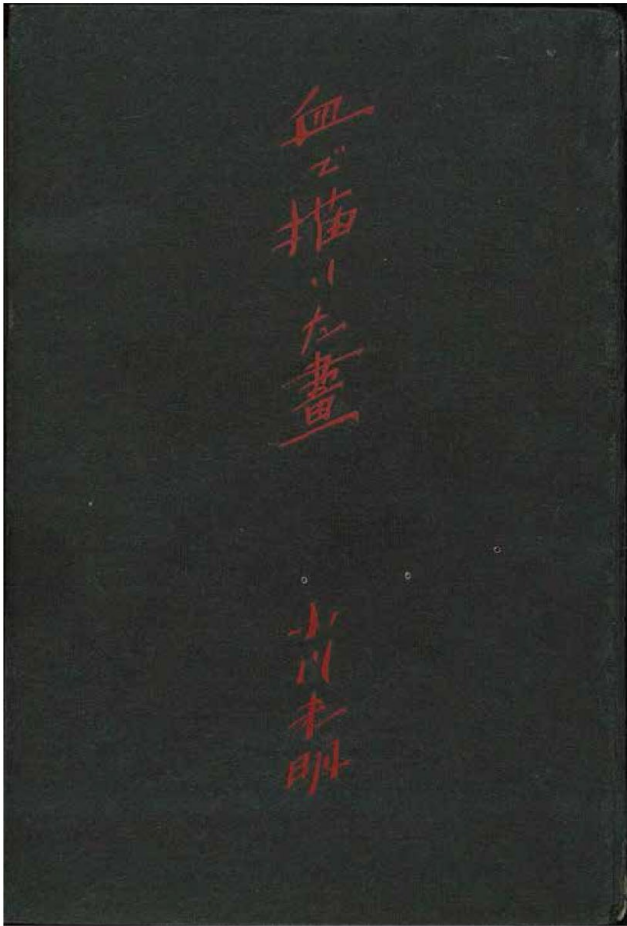 血で描いた畫
小川未明